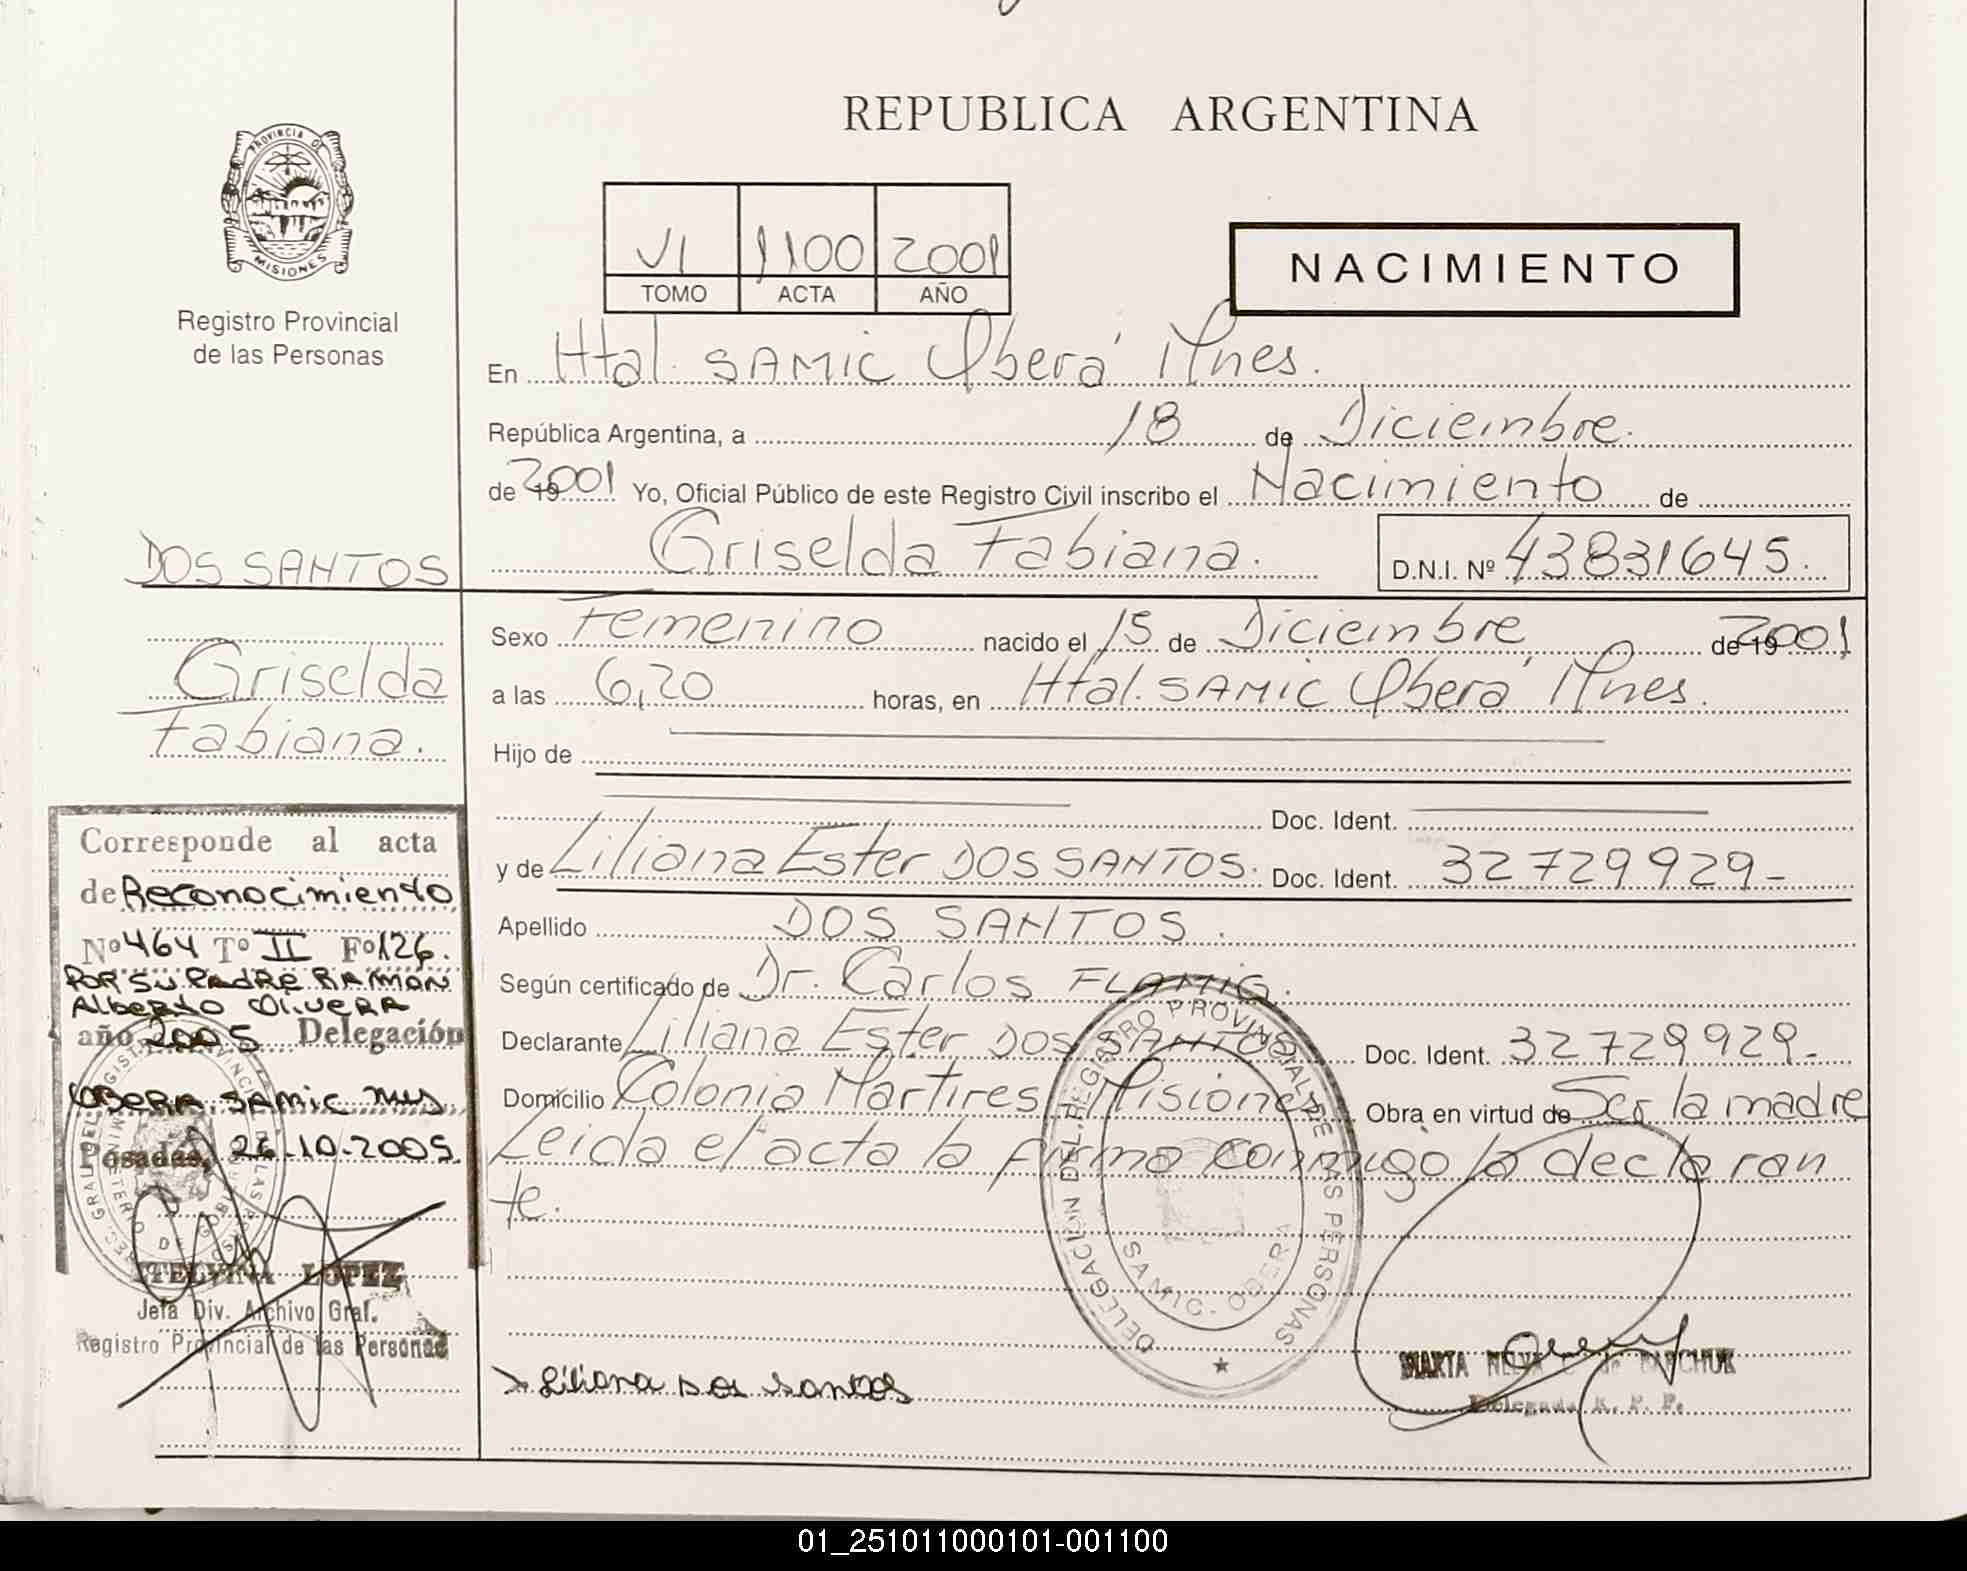 REPUBLICA ARGENTINA
PROVINCIA DE
MISIONES
Registro Provincial
de las Personas
VI 1100 2001
TOMO ACTA AÑO
NACIMIENTO
En Htal. SAMIC Oberá Mnes.
República Argentina, a 18 de Diciembre.
de 19 2001 Yo, Oficial Público de este Registro Civil inscribo el Nacimiento de
Griselda Fabiana. D.N.I. Nº 43831645.
DOS SANTOS
Griselda
Fabiana.
Sexo Femenino nacido el 15 de Diciembre de 19 2001
a las 6,20 horas, en Htal. SAMIC Oberá Mnes.
Hijo de
Doc. Ident.
y de Liliana Ester DOS SANTOS. Doc. Ident. 32729929-
Apellido DOS SANTOS.
Según certificado de Dr. Carlos FLAMIG.
Declarante Liliana Ester DOS SANTOS Doc. Ident. 32729929-
Domicilio Colonia Martires Misiones Obra en virtud de Ser la madre
Leida el acta la firma conmigo la declaran
te.
Corresponde al acta
de Reconocimiento
Nº 464 Tº II Fº 126.
POR SU PADRE RAMON
Alberto OLIVERA
año 2005 Delegación
OBERA. SAMIC MNES
Posadas, 26-10-2005.
ITELVINA LOPEZ
Jefa Div. Archivo Gral.
Registro Provincial de las Personas
DELEGACION DEL REGISTRO PROVINCIAL DE LAS PERSONAS
SAMIC - OBERA
Liliana Dos Santos
MARTA
Delegada R. P. P.
01_251011000101-001100